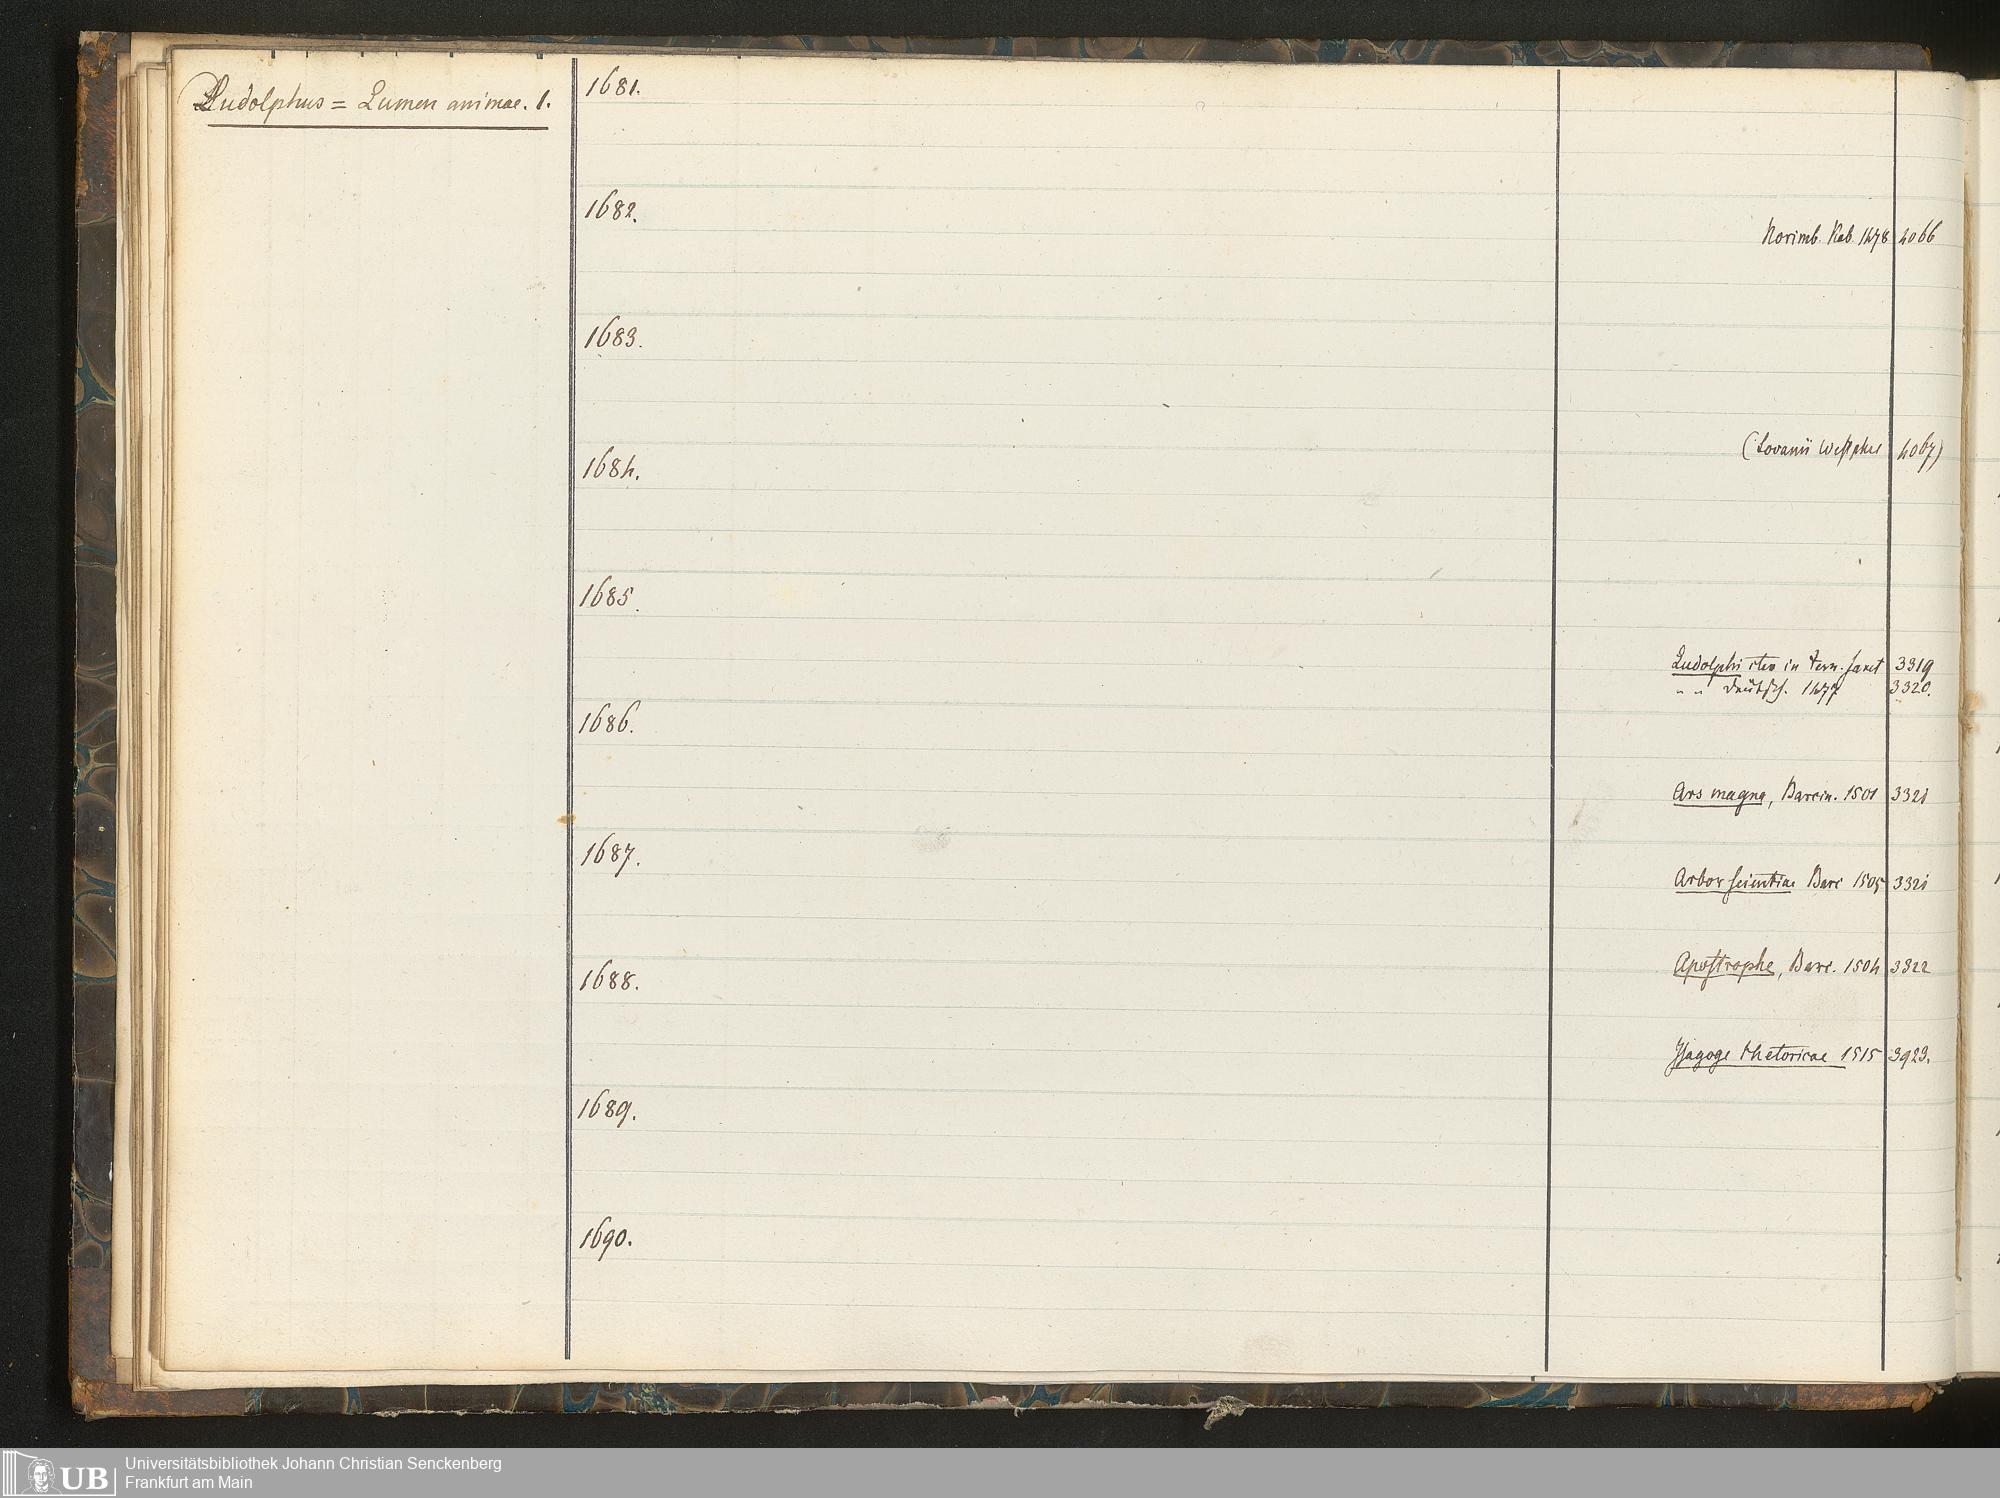 Ludolphus = Lumen animae. 1.
1681.
1682.
Norimb. Kob. 1478 4066
1683.
(Lovanii Westphal 4067)
1684.
1685.
Ludolphi iter in terr. sanct 3319
" " Deutsch. 1477 3320.
1686.
Ars magna, Barcin. 1501 3321
1687.
Arbor scientiae Barc 1505 3321
1688.
Apostrophe, Barc. 1504 3322
Isagoge rhetoricae 1515 3923.
1689.
1690.
UB
Universitätsbibliothek Johann Christian Senckenberg
Frankfurt am Main